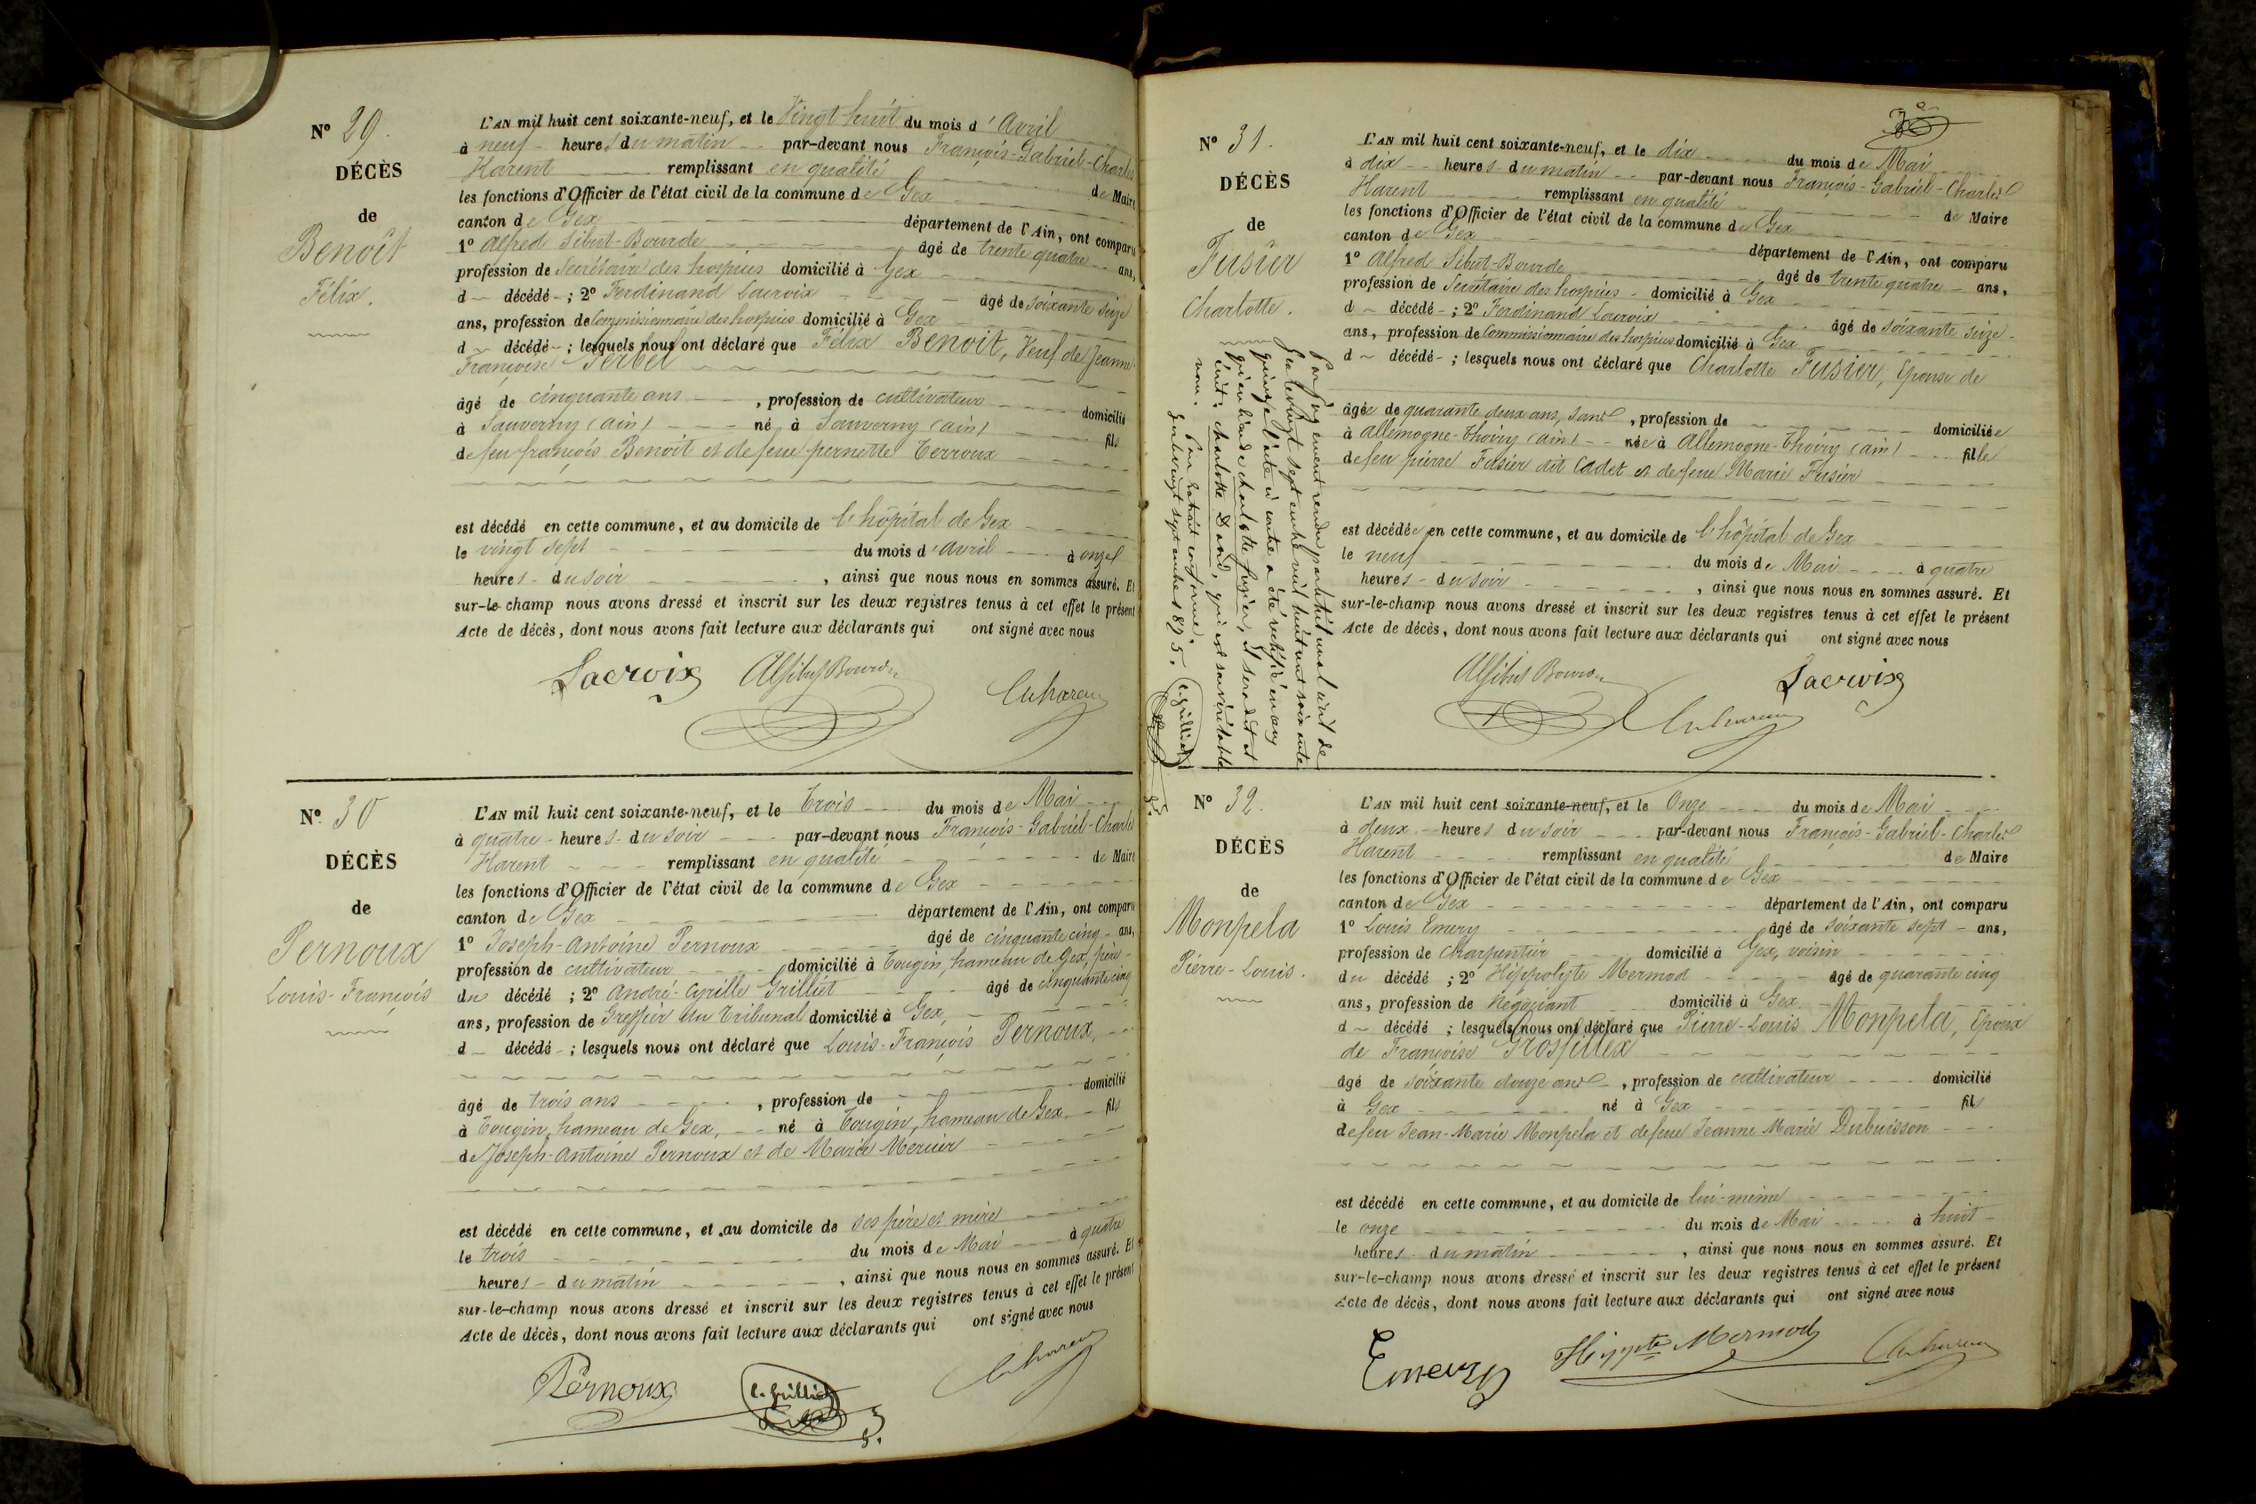 Nº 29.
DÉCÈS
de
Benoît
Félix.
L'AN mil huit cent soixante-neuf, et le Vingt huit du mois d'Avril
à neuf heures du matin par-devant nous François-Gabriel-Charles
Harent remplissant en qualité de Maire
les fonctions d'Officier de l'état civil de la commune de Gex
canton de Gex département de l'Ain, ont comparu
1º Alfred Sibut-Bourde âgé de trente quatre ans,
profession de Secrétaire des hospices domicilié à Gex
d décédé ; 2º Ferdinand Lacroix âgé de soixante seize
ans, profession de Commissionnaire des hospices domicilié à Gex
d décédé ; lesquels nous ont déclaré que Félix Benoit, Veuf de Jeanne
Françoise
âgé de cinquante ans , profession de cultivateur domicilié
à Sauverny (ain) né à Sauverny (ain) fils
de feu françois Benoît et de feue pernette Terroux
est décédé en cette commune, et au domicile de l'hôpital de Gex
le vingt sept du mois d'avril à onze
heures du soir , ainsi que nous nous en sommes assuré. Et
sur-le-champ nous avons dressé et inscrit sur les deux registres tenus à cet effet le présent
Acte de décès, dont nous avons fait lecture aux déclarants qui ont signé avec nous
Lacroix Alf Sibut Bourde Ch harent
Nº 30
DÉCÈS
de
Pernoux
Louis-François
L'AN mil huit cent soixante-neuf, et le Trois du mois de Mai
à quatre heures du soir par-devant nous François-Gabriel-Charles
Harent remplissant en qualité de Maire
les fonctions d'Officier de l'état civil de la commune de Gex
canton de Gex département de l'Ain, ont comparu
1º Joseph-Antoine Pernoux âgé de cinquante cinq ans,
profession de cultivateur domicilié à Tougin, hameau de Gex, père
du décédé ; 2º André-Cyrille Grilliet âgé de cinquante cinq
ans, profession de Greffier du Tribunal domicilié à Gex,
d décédé ; lesquels nous ont déclaré que Louis-François Pernoux,
âgé de trois ans , profession de domicilié
à Tougin, hameau de Gex, né à Tougin, hameau de Gex fils
de Joseph-Antoine Pernoux et de Marie Mercier
est décédé en cette commune, et au domicile de ses père et mère
le trois du mois de Mai à quatre
heures du matin , ainsi que nous nous en sommes assuré. Et
sur-le-champ nous avons dressé et inscrit sur les deux registres tenus à cet effet le présent
Acte de décès, dont nous avons fait lecture aux déclarants qui ont signé avec nous
Pernoux C. Grilliet Ch harent
Nº 31.
DÉCÈS
de
Fusier
Charlotte.
Par jugement rendu par le tribunal civil de
Gex le vingt sept septembre mil huit cent soixante
quinze l'acte ci contre a été rectifié en ce
qu'au lieu de charlotte fusier, il sera dit et
écrit: charlotte , qui est son véritable
nom. Pour extrait conforme.
Gex le vingt sept septembre 1875.
C. Grilliet
L'AN mil huit cent soixante-neuf, et le dix du mois de Mai
à dix heures du matin par-devant nous François-Gabriel-Charles
Harent remplissant en qualité de Maire
les fonctions d'Officier de l'état civil de la commune de Gex
canton de Gex département de l'Ain, ont comparu
1º Alfred Sibut-Bourde âgé de trente quatre ans,
profession de Secrétaire des hospices domicilié à Gex
d décédé ; 2º Ferdinand Lacroix âgé de soixante seize
ans, profession de Commissionnaire des hospices domicilié à Gex
d décédé ; lesquels nous ont déclaré que Charlotte Fusier, Epouse de
âgée de quarante deux ans, sans , profession de domiciliée
à Allemogne-Thoiry (ain) née à Allemogne-Thoiry (ain) fille
de feu pierre Fusier dit Cadet et de feue Marie Fusier
est décédée en cette commune, et au domicile de l'hôpital de Gex
le neuf du mois de Mai à quatre
heures du soir , ainsi que nous nous en sommes assuré. Et
sur-le-champ nous avons dressé et inscrit sur les deux registres tenus à cet effet le présent
Acte de décès, dont nous avons fait lecture aux déclarants qui ont signé avec nous
Alf Sibut Bourde Ch harent Lacroix
Nº 32.
DÉCÈS
de
Monpela
Pierre-Louis.
L'AN mil huit cent soixante-neuf, et le Onze du mois de Mai
à deux heures du soir par-devant nous François-Gabriel-Charles
Harent remplissant en qualité de Maire
les fonctions d'Officier de l'état civil de la commune de Gex
canton de Gex département de l'Ain, ont comparu
1º Louis Emery âgé de soixante sept ans,
profession de Charpentier domicilié à Gex, voisin
du décédé ; 2º Hippolyte Mermod âgé de quarante cinq
ans, profession de Négociant domicilié à Gex
d décédé ; lesquels nous ont déclaré que Pierre-Louis Monpela, Epoux
de Françoise Grosfillex
âgé de soixante douze ans , profession de cultivateur domicilié
à Gex né à Gex fils
de feu Jean-Marie Monpela et de feue Jeanne Marie Dubuisson
est décédé en cette commune, et au domicile de lui-même
le onze du mois de Mai à huit
heures du matin , ainsi que nous nous en sommes assuré. Et
sur-le-champ nous avons dressé et inscrit sur les deux registres tenus à cet effet le présent
Acte de décès, dont nous avons fait lecture aux déclarants qui ont signé avec nous
Emery Hippte Mermod Ch harent